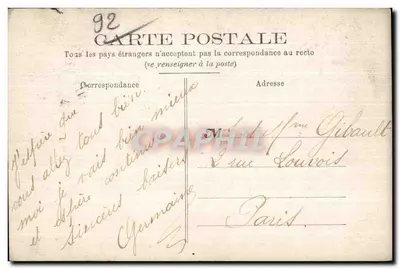 92
CARTE POSTALE
Tous les pays étrangers n'acceptent pas la correspondance au recto
(se renseigner à la poste)
Correspondance
Adresse
J'espère que
vous allez tous bien
moi je vais bien mieux
et espère continuer
Sincères baisers
Germaine
M et Mme Gibault
2 rue Louvois
Paris.
CPAPHIL